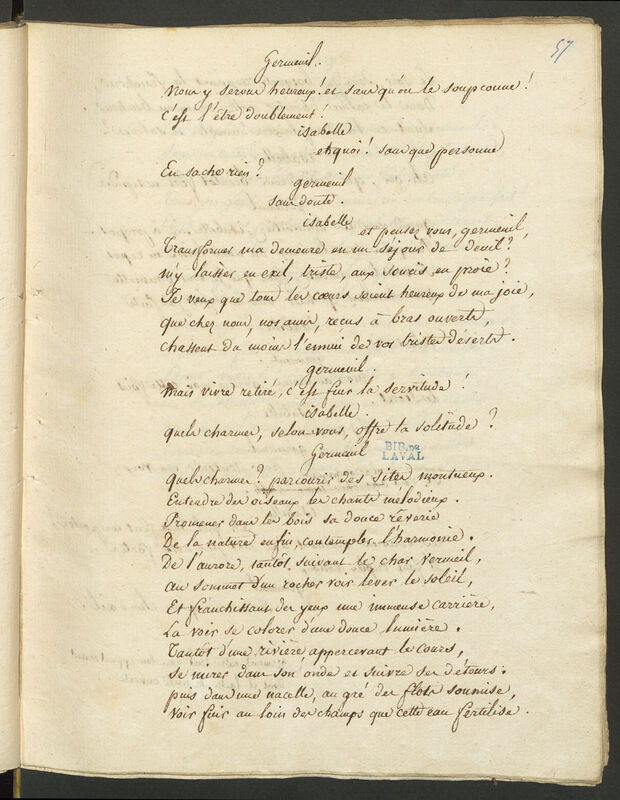 57
Germeuil.
Nous y serons heureux! et sans qu'on le soupconne!
C'est l'être doublement!
isabelle
et quoi! sans que personne
En sache rien?
germeuil
sans doute.
isabelle
et pensez vous, germeuil,
Transformer ma demeure en un séjour de deuil?
m'y laisser en exil, triste, aux soucis en proie?
Je veux que tous les cœurs soient heureux de ma joie,
que chez nous, nos amis, reçus à bras ouverts,
chassent du moins l'ennui de vos tristes déserts.
germeuil.
mais vivre retiré, c'est fuir la servitude!
isabelle.
quels charmes, selon vous, offre la solitude?
Germeuil
BIB. DE
LAVAL
Quels charmes? parcourir des sites montueux.
Entendre des oiseaux les chants mélodieux.
Promener dans les bois sa douce rêverie
De la nature enfin, contempler l'harmonie.
De l'aurore, tantôt, suivant le char vermeil,
au sommet d'un rocher voir lever le soleil,
Et franchissant des yeux une immense carrière,
La voir se colorer d'une douce lumière.
Tantôt d'une rivière appercevant le cours,
se mirer dans son onde et suivre ses détours:
puis dans une nacelle, au gré des flots soumise,
Voir fuir au loin des champs que cette eau fertilise.